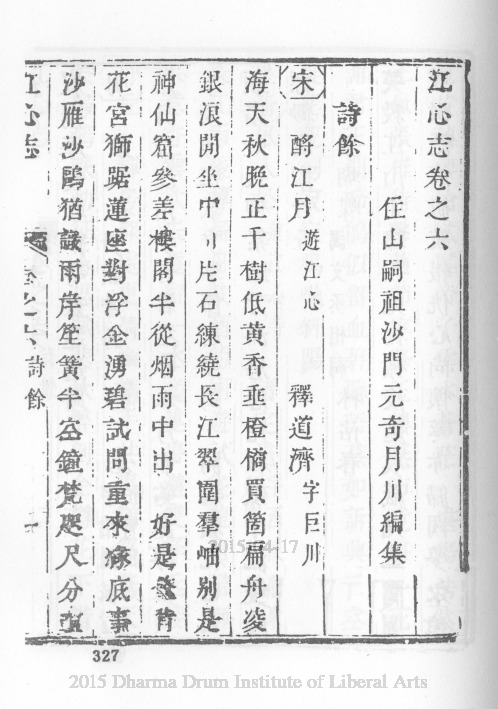 江心志卷之六
住山嗣祖沙門元奇月川編集
詩餘
宋 酹江月 遊江心 釋道濟字巨川
海天秋晚正千樹低黄香垂橙橘買箇扁舟凌
銀浪開坐中川片石練繞長江翠圍羣岫别是
神仙窟參差樓閣半從烟雨中出 好是鰲背
花宮獅踞蓮座對浮金湧碧試問重來緣底事
沙雁沙鷗猶識兩岸笙簧半空鐘梵咫尺分
江心志 卷之六 詩餘 一
2015-04-17
327
2015 Dharma Drum Institute of Liberal Arts